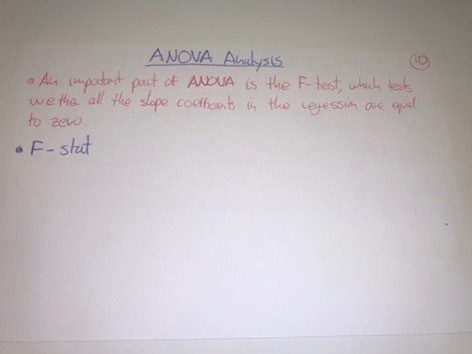 ANOVA Analysis
10
• An important part of ANOVA is the F-test, which tests
whether all the slope coefficients in the regression are equal
to zero.
• F-stat